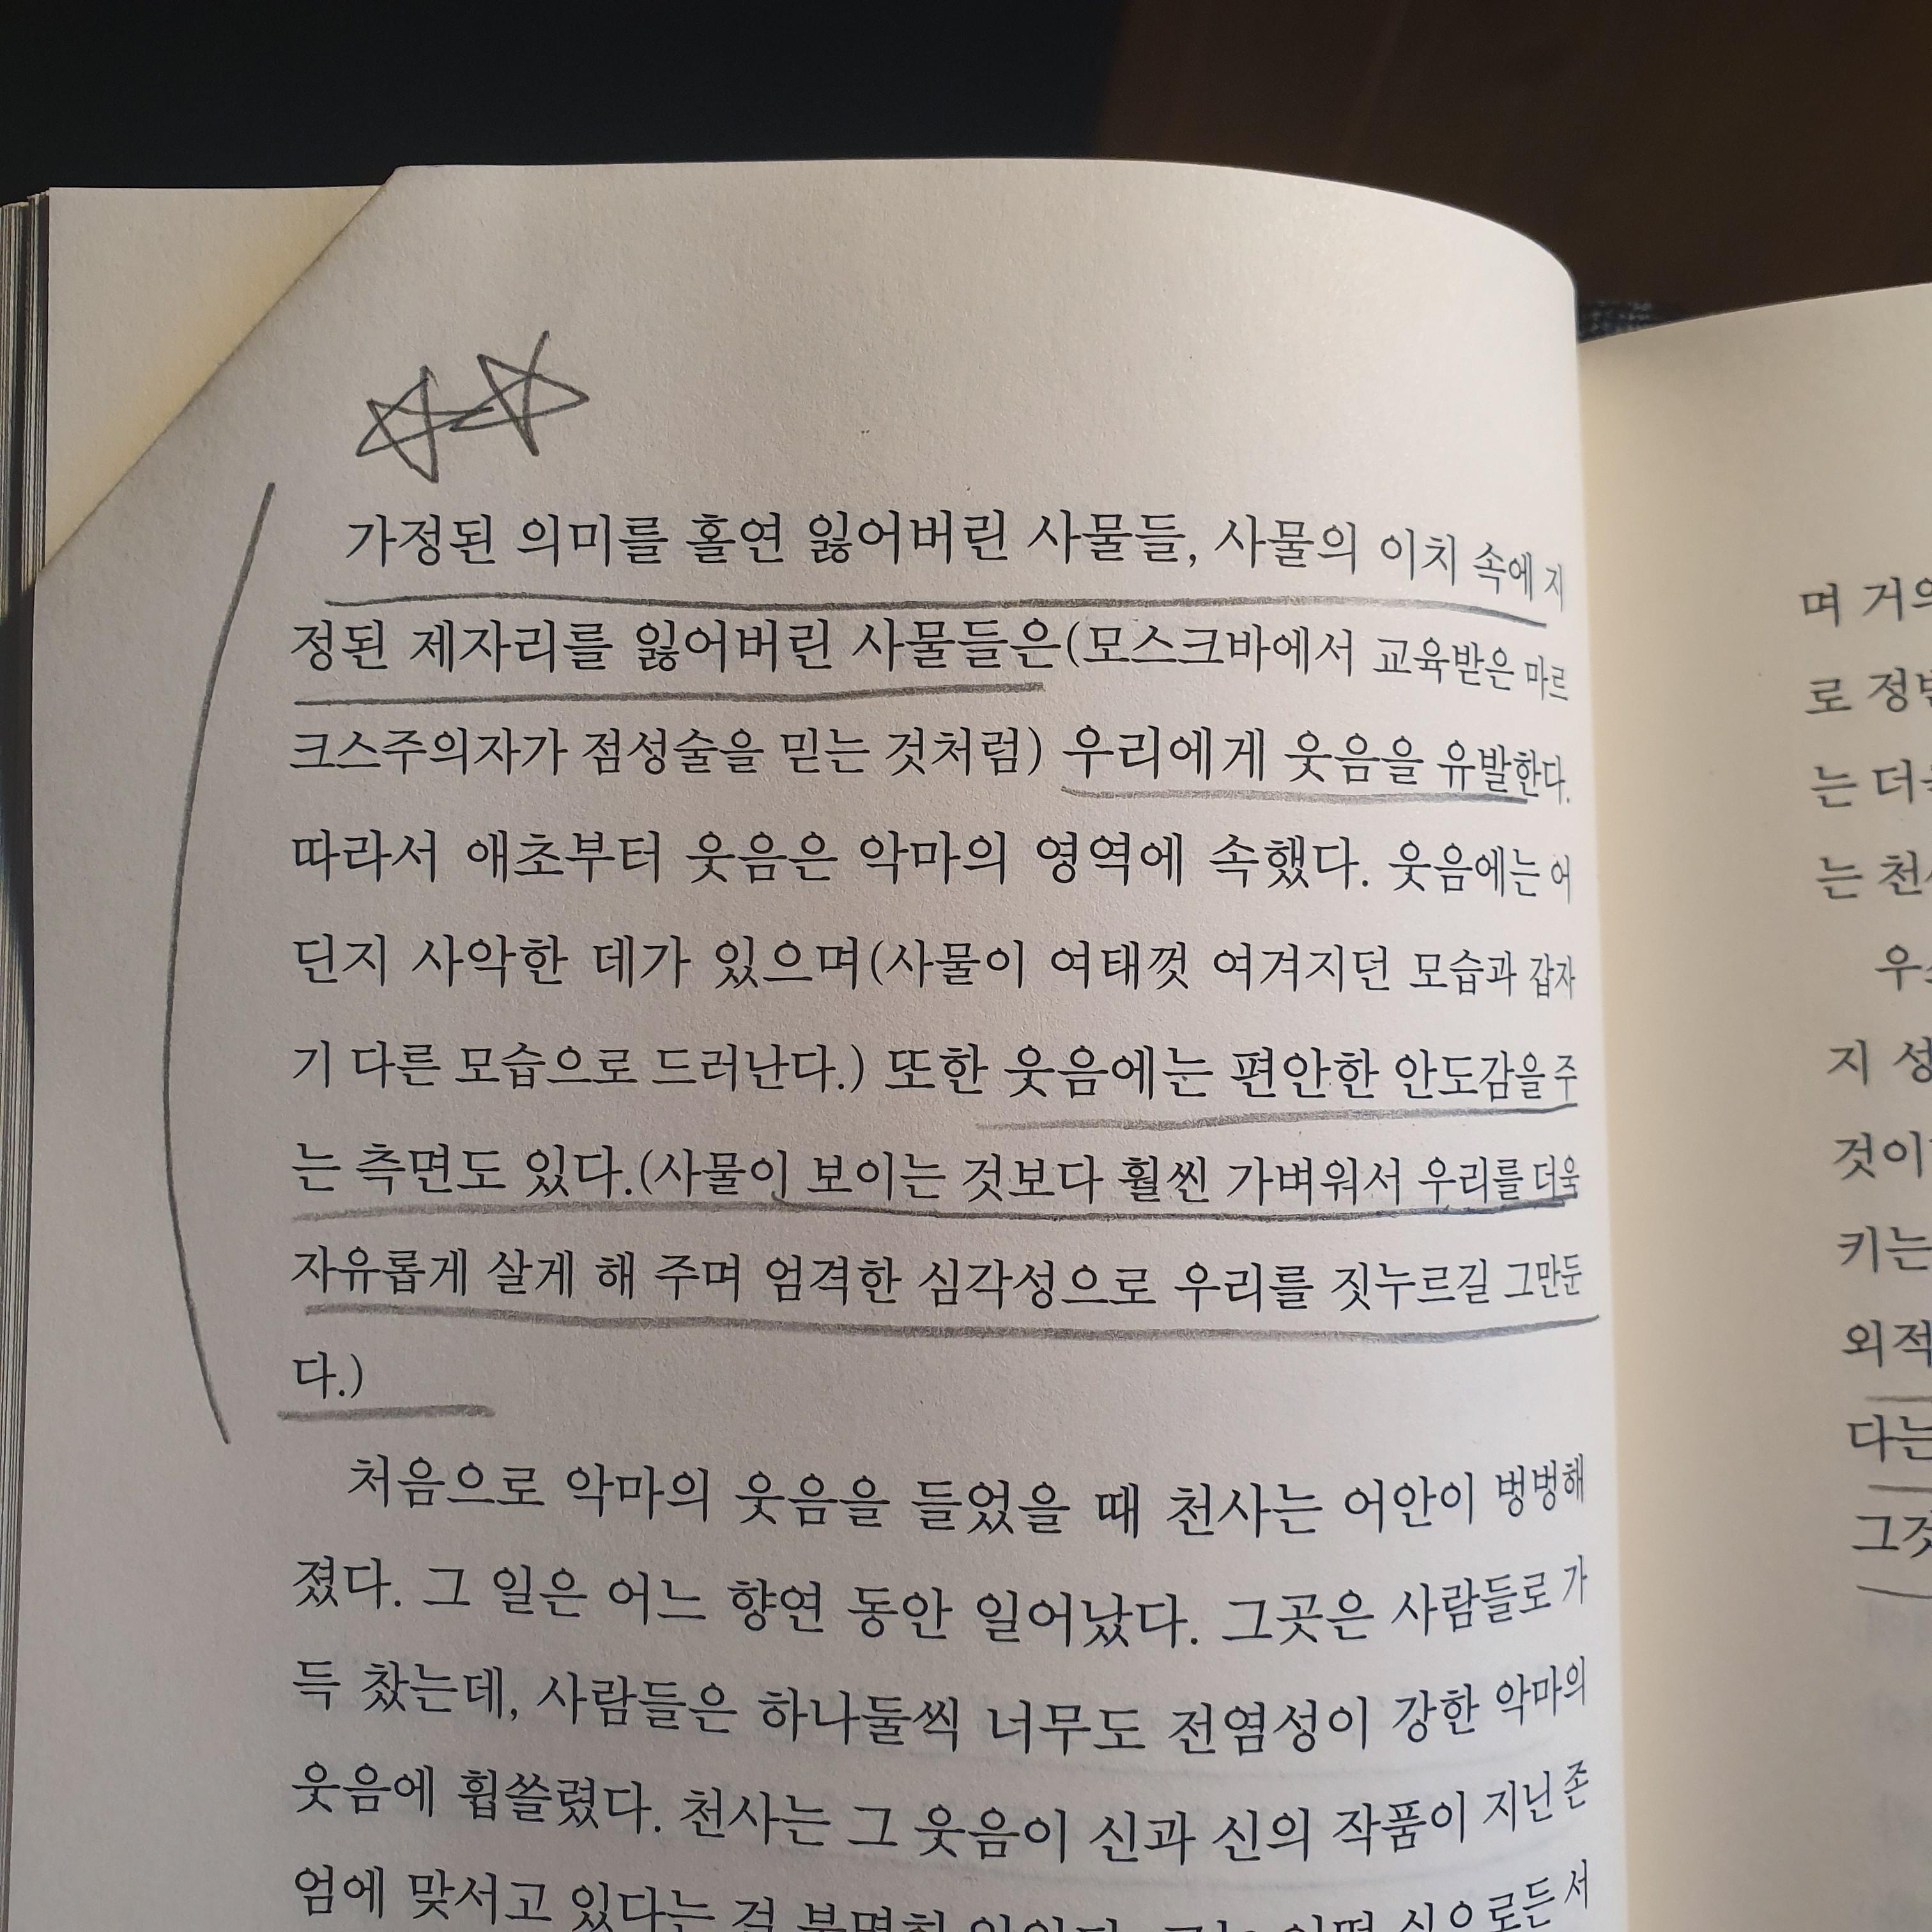 가정된 의미를 홀연 잃어버린 사물들, 사물의 이치 속에 지
정된 제자리를 잃어버린 사물들은(모스크바에서 교육받은 마르
크스주의자가 점성술을 믿는 것처럼) 우리에게 웃음을 유발한다.
따라서 애초부터 웃음은 악마의 영역에 속했다. 웃음에는 어
딘지 사악한 데가 있으며(사물이 여태껏 여겨지던 모습과 갑자
기 다른 모습으로 드러난다.) 또한 웃음에는 편안한 안도감을 주
는 측면도 있다.(사물이 보이는 것보다 훨씬 가벼워서 우리를 더욱
자유롭게 살게 해 주며 엄격한 심각성으로 우리를 짓누르길 그만둔
다.)
처음으로 악마의 웃음을 들었을 때 천사는 어안이 벙벙해
졌다. 그 일은 어느 향연 동안 일어났다. 그곳은 사람들로 가
득 찼는데, 사람들은 하나둘씩 너무도 전염성이 강한 악마의
웃음에 휩쓸렸다. 천사는 그 웃음이 신과 신의 작품이 지닌 존
엄에 맞서고 있다는 걸
며
로
는
는
지
것이
키는
다는